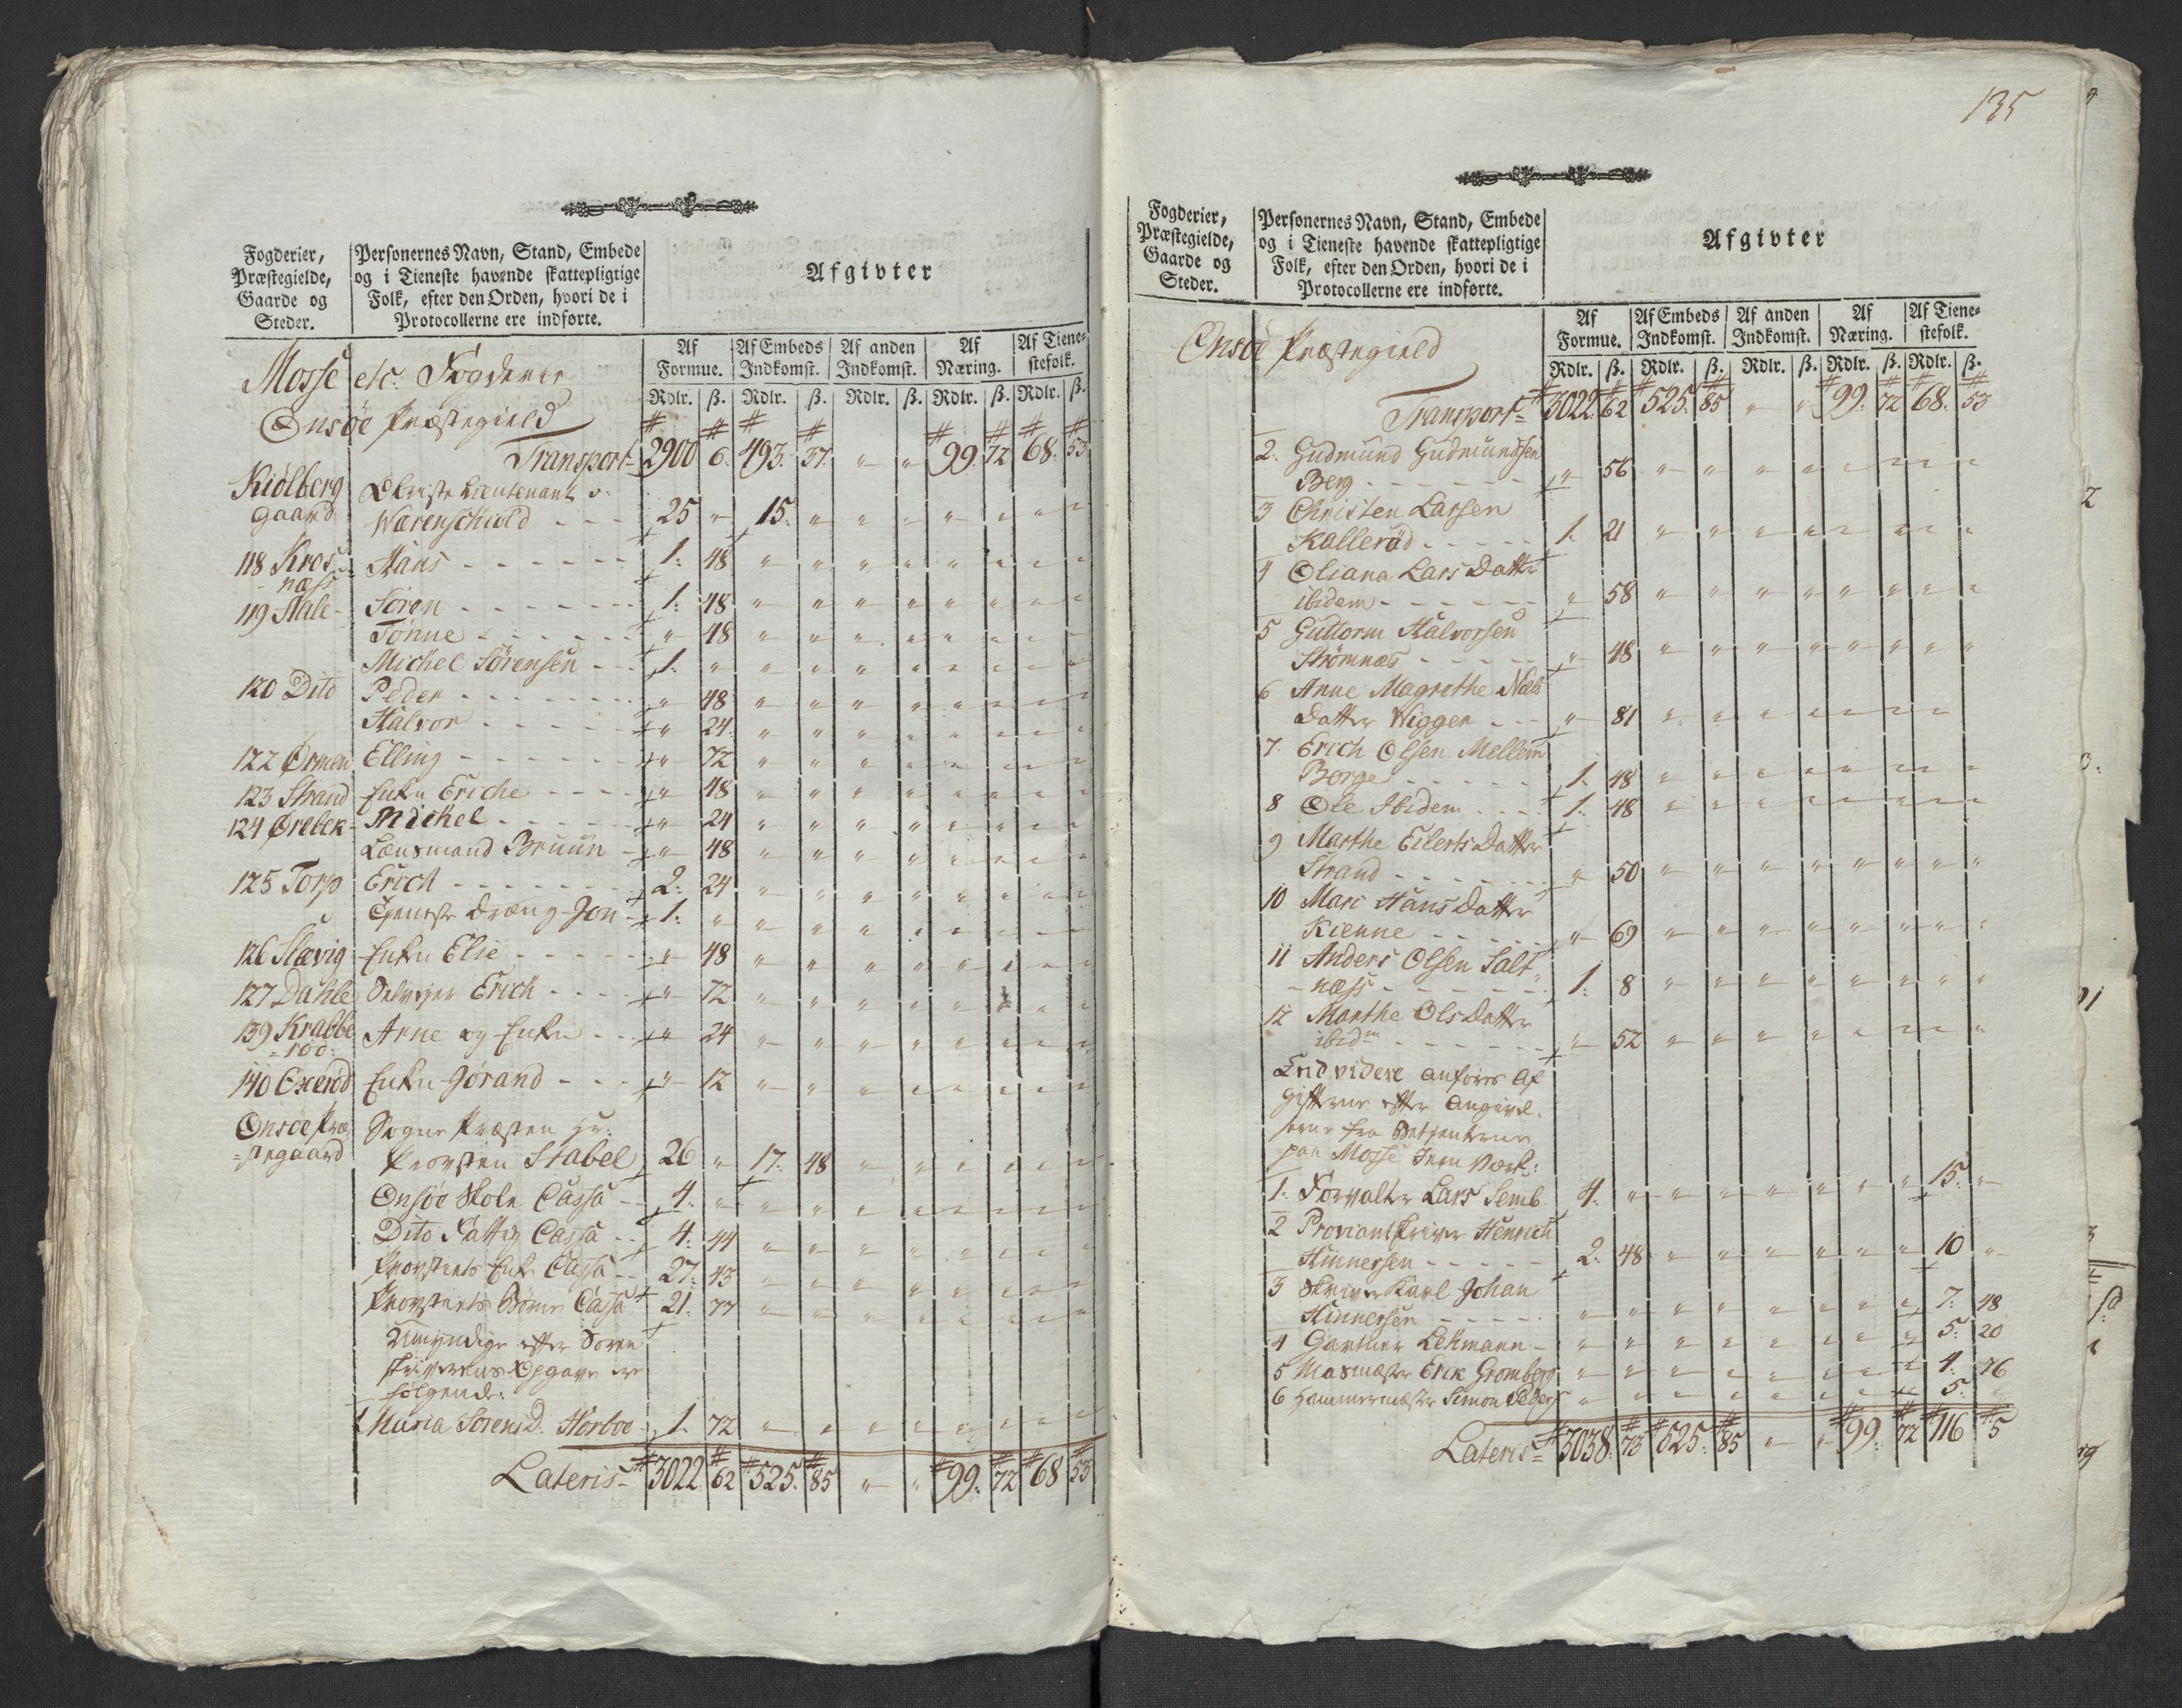 Fogderier,
Præstegielde,
Gaarde og
Steder.
Personernes Navn, Stand, Embede
og i Tieneste havende skattepligtige
Folk, efter den Orden, hvori de i
Protocollerne ere indførte.
Afgivter
Af Formue. Af Embeds Indkomst. Af anden Indkomst. Af Næring. Af Tienestefolk.
Rdlr. ß. Rdlr. ß. Rdlr. ß. Rdlr. ß. Rdlr. ß.
Mosse etc. Fogderie
Onsøe Præstegield
Transport 2900 6. 493. 37 " " 99. 72 68. 53
Kiølberg Obriste Lieutenant v.
gaard Warenschiold - - - 25 " 15. " " " " " " "
118 Kros- Hans - - - 1. 48 " " " " " " " "
næss
119 Hale - Søren - - - 1. 48 " " " " " " " "
Tønne - - - " 48 " " " " " " " "
Michel Sørensen - - 1. " " " " " " " " "
120 Dito Peder - - - " 48 " " " " " " " "
Halvor - - - " 24. " " " " " " " "
122 Ørmen Elling - - - " 72 " " " " " " " "
123 Strand Enke Eriche - - - " 48 " " " " " " " "
124 Ørebek - Michel - - - " 24 " " " " " " " "
Lænsmand Bruun - " 48 " " " " " " " "
125 Torp Erich - - - 2. 24 " " " " " " " "
Tieneste Dræng Jon - 1. " " " " " " " " "
126 Slævig Enke Elie - - - " 48 " " " " " " " "
127 Dahle Selveyer Erich - - - " 72 " " " " " " " "
139 Krabbe Arne og Enke - - " 24 " " " " " " " "
= rød.
140 Exerød Enke Jørand - - - " 12 " " " " " " " "
Onsøe Præ Sogne Præsten Hr.
= stegaard Provsten Stabel 26 " 17. 48 " " " " " "
Onsøe Skole Cassa - - 4. " " " " " " " " "
Dito Fattig Cassa - - 4. 44 " " " " " " " "
Provstiets Enke Cassa - - 27. 43 " " " " " " " "
Provstiets Børne Cassa 21. 77 " " " " " " " "
Umyndige efter Soren
skriverens Opgave ere
følgende:
1 Maria Sorens D. Horboe - 1. 72 " " " " " " " "
Lateris - 3022 62 525. 85 " " 99. 72 68 53
135
Fogderier,
Præstegielde,
Gaarde og
Steder.
Personernes Navn, Stand, Embede
og i Tieneste havende skattepligtige
Folk, efter den Orden, hvori de i
Protocollerne ere indførte.
Afgivter
Af Formue. Af Embeds Indkomst. Af anden Indkomst. Af Næring. Af Tienestefolk.
Rdlr. ß. Rdlr. ß. Rdlr. ß. Rdlr. ß. Rdlr. ß.
Onsøe Præstegield
Transport - 3022. 62 525. 85 " " 99. 72 68. 53
2. Gudmund Gudmundsen
Berg - - - " 56 " " " " " " " "
3 Christen Larsen
Kallerød - - - 1. 21 " " " " " " " "
4 Oliana Lars Datter
ibidem - - - " 58 " " " " " " " "
5 Guttorm Halvorsen
Strømnæs - - - " 48 " " " " " " " "
6 Anne Magrethe Niels
Datter Wiggen - - - " 81 " " " " " " " "
7. Erich Olsen Mellem
Borge - - - 1. 48 " " " " " " " "
8 Ole Ibidem - - - 1. 48 " " " " " " " "
9 Marthe Eilerts Datter
Strand - - - " 50 " " " " " " " "
10 Mari Hans Datter
Kienne - - - " 69 " " " " " " " "
11 Anders Olsen Salt
- næss - - - 1. 8 " " " " " " " "
12 Marthe Ols Datter
ibidm - - - " 52 " " " " " " " "
Endvidere anføres Af
gifterne efter Angivel.
serne fra Betienterne
paa Mosse Jern Værk:
1. Forvalter Lars Semb 4. " " " " " " " 15. "
2 Proviantskriver Henrich
Hinnersen - - - 2. 48 " " " " " " 10 "
3 Skriver Karl Johan
Hinnersen - - - " " " " " " " " 7. 48
4 Gartner Lehmann - " " " " " " " " 5. 20
5 Masmæster Erik Gromberg " " " " " " " " 4. 76
6 Hammermæster Simon " " " " " " " " 5. "
Lateris = 3038. 73 525. 85 " " 99. 72 116 5